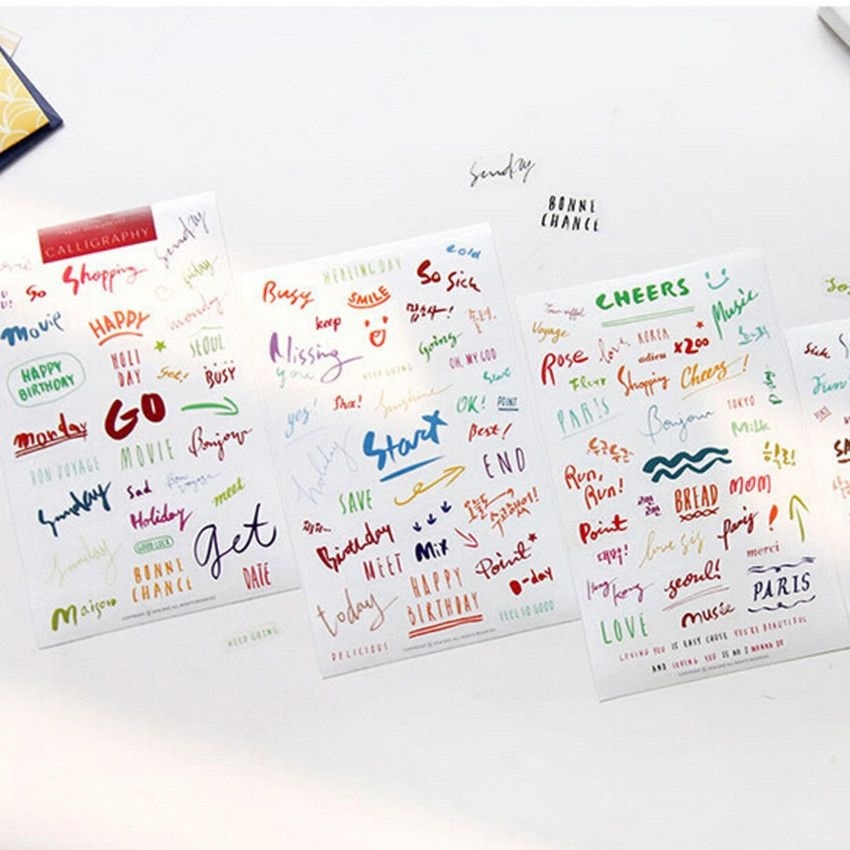 Sunday
BONNE
CHANCE
CALLIGRAPHY
Sunday
Go
Shopping
Movie
HAPPY
monday
HAPPY
BIRTHDAY
HOLI
DAY
SEOUL
BUSY
monday
GO
BON VOYAGE
MOVIE
Bonjour
Sunday
Sad
Bon
Voyage
meet
Holiday
Sunday
GOOD LUCK
get
BONNE
CHANCE
DATE
Maison
KEEP GOING
cold
HEALING DAY
Busy
SMILE
So sick
keep
Missing
you
going
OH MY GOD
KEEP GOING
yes!
Sunshine
OK!
POINT
holiday
Start
Best!
SAVE
END
오늘도
수고했어!
Birthday
MEET
Mix
Point
D-day
today
HAPPY
BIRTHDAY
FEEL SO GOOD
DELICIOUS
CHEERS
Music
Voyage
Rose
love
KOREA
adieu
x200
Fleur
Shopping
Cheers!
PARIS
Bonjour
TOKYO
Milk
두근두근
힐링!
Run,
Run!
BREAD
MOM
Point
대박!
Paris
merci
Hong
Kong
seoul!
PARIS
LOVE
music
LOVING YOU IS EASY CAUSE YOU'RE BEAUTIFUL
AND LOVING YOU IS ALL I WANNA DO
Sick